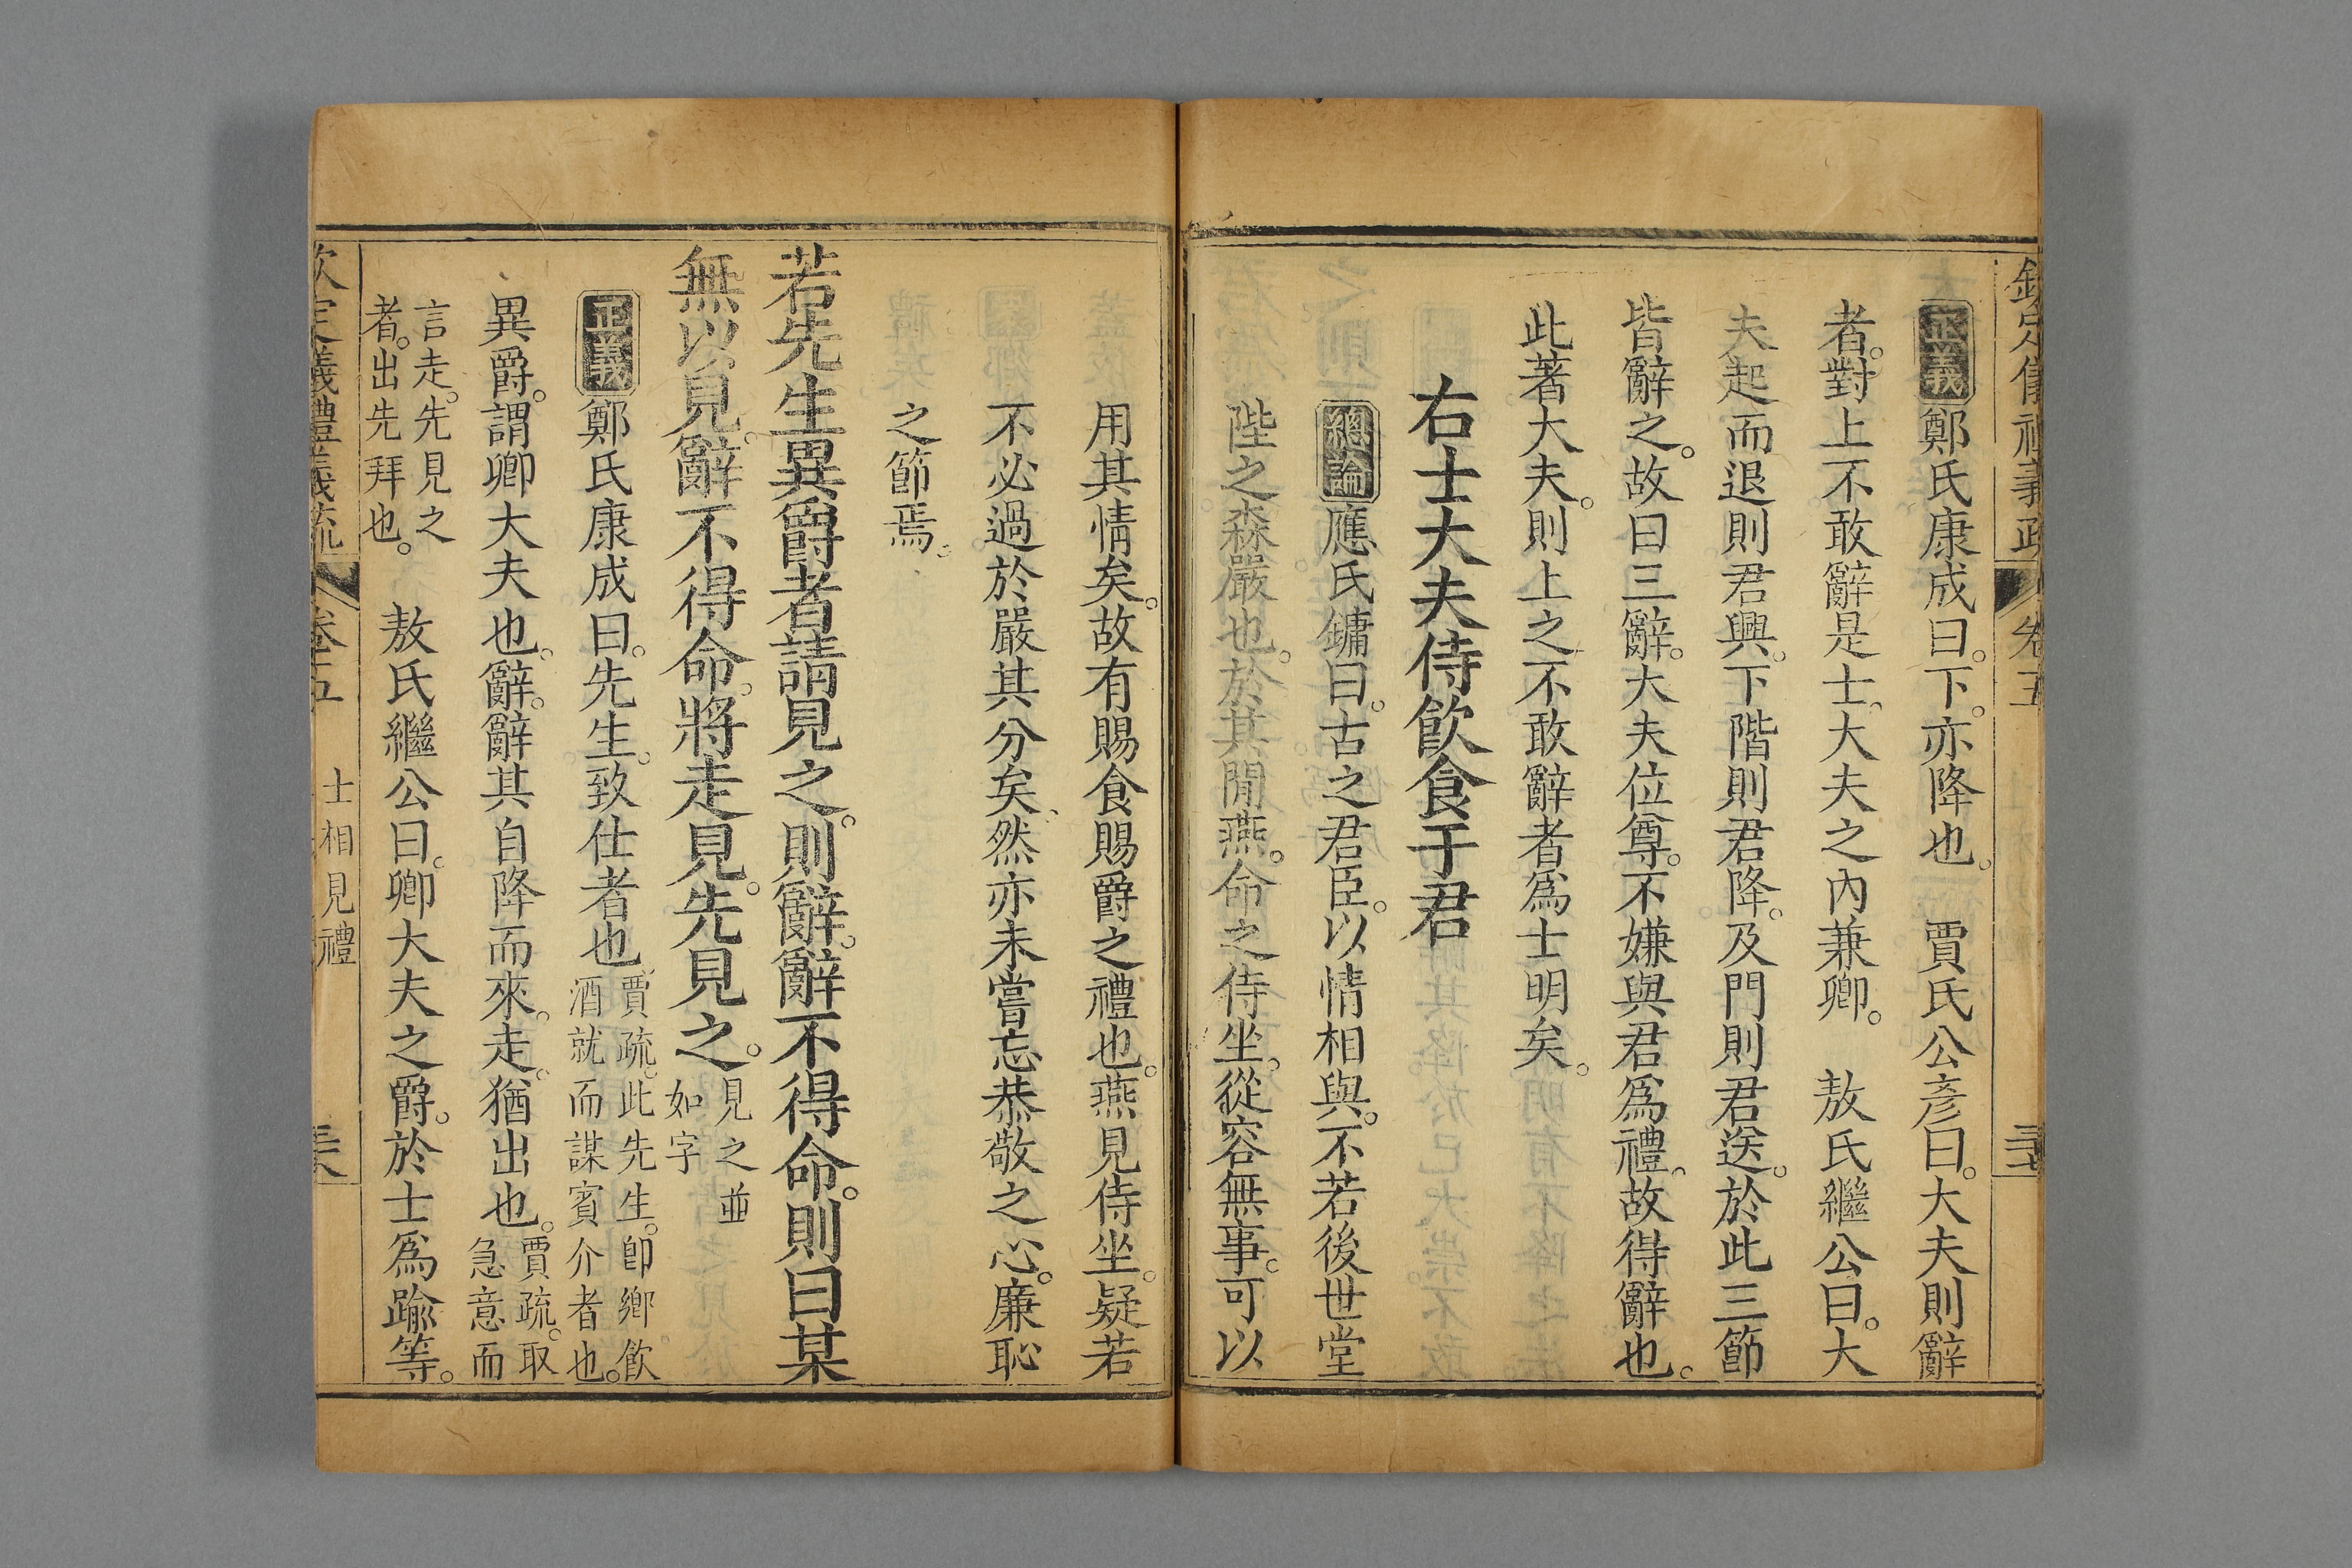 欽定儀禮義疏 卷五 三十七
正義鄭氏康成曰。下。亦降也。 賈氏公彥曰。大夫則辭
者。對上不敢辭是士。大夫之內兼卿。 敖氏繼公曰。大
夫起而退則君興。下階則君降。及門則君送。於此三節
皆辭之。故曰三辭。大夫位尊。不嫌與君爲禮。故得辭也。
此著大夫。則上之不敢辭者爲士明矣。
右士大夫侍飮食于君
總論應氏鏞曰。古之君臣。以情相與。不若後世堂
陛之森嚴也。於其閒燕。命之侍坐。從容無事。可以
用其情矣。故有賜食賜爵之禮也。燕見侍坐。疑若
不必過於嚴其分矣。然亦未嘗忘恭敬之心。廉恥
之節焉。
若先生異爵者請見之。則辭。辭不得命。則曰某
無以見。辭不得命。將走見。先見之。見之並
如字
正義鄭氏康成曰。先生。致仕者也。賈疏。此先生。卽鄉飮
酒就而謀賓介者也。
異爵。謂卿大夫也。辭。辭其自降而來。走。猶出也。賈疏。取
急意而
言走。先見之
者。出先拜也。 敖氏繼公曰。卿大夫之爵。於士爲踰等。
欽定儀禮義疏 卷五 士相見禮 三十八